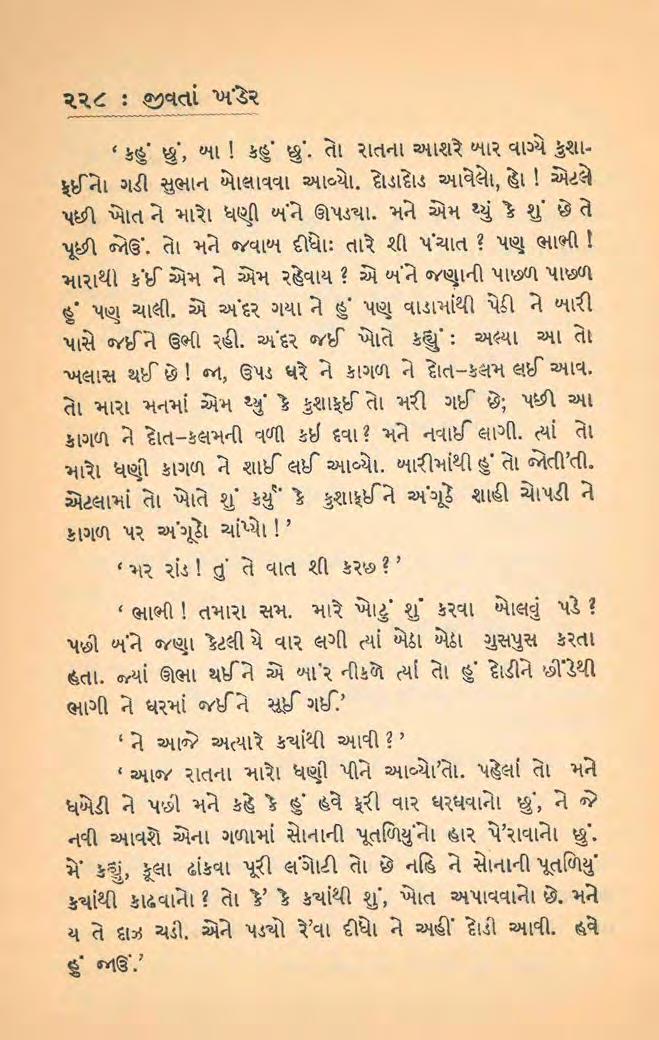 ૨૨૮ : જીવતાં ખંડેર
‘ કહું છું, બા ! કહું છું. તો રાતના આશરે બાર વાગ્યે કુશા-
ફઈનો ગડી સુભાન બોલાવવા આવ્યો. દોડાદોડ આવેલો, હો ! એટલે
પછી ખોત ને મારો ધણી બંને ઊપડ્યા. મને એમ થ્યું કે શું છે તે
પૂછી જોઉં. તો મને જવાબ દીધોઃ તારે શી પંચાત ? પણ ભાભી !
મારાથી કંઈ એમ ને એમ રહેવાય ? એ બંને જણાની પાછળ પાછળ
હું પણ ચાલી. એ અંદર ગયા ને હું પણ વાડામાંથી પેઠી ને બારી
પાસે જઈને ઉભી રહી. અંદર જઈ ખોતે કહ્યું : અલ્યા આ તો
ખલાસ થઈ છે ! જા, ઉપડ ઘરે ને કાગળ ને દોત–કલમ લઈ આવ.
તો મારા મનમાં એમ થ્યું કે કુશાફઈ તો મરી ગઈ છે; પછી આ
કાગળ ને દોત–કલમની વળી કઈ દવા ? મને નવાઈ લાગી. ત્યાં તો
મારો ધણી કાગળ ને શાઈ લઈ આવ્યો. બારીમાંથી હું તો જોતી'તી.
એટલામાં તો ખોતે શું કર્યું કે કુશાફઈને અંગૂઠે શાહી ચોપડી ને
કાગળ પર અંગૂઠો ચાંપ્યો ! ’
‘ મર રાંડ ! તું તે વાત શી કરછ ? ’
‘ ભાભી ! તમારા સમ. મારે ખોટું શું કરવા બોલવું પડે ?
પછી બંને જણા કેટલી યે વાર લગી ત્યાં બેઠા બેઠા ગુસપુસ કરતા
હતા. જ્યાં ઊભા થઈને એ બા'ર નીકળે ત્યાં તો હું દોડીને છીંડેથી
ભાગી ને ઘરમાં જઈને સૂઈ ગઈ.’
‘ ને આજે અત્યારે ક્યાંથી આવી ? ’
‘ આજ રાતના મારો ધણી પીને આવ્યો'તો. પહેલાં તો મને
ધબેડી ને પછી મને કહે કે હું હવે ફરી વાર ઘરઘવાનો છું, ને જે
નવી આવશે એના ગળામાં સોનાની પૂતળિયુંનો હાર પે'રાવાનો છું.
મેં કહ્યું, કૂલા ઢાંકવા પૂરી લંગોટી તો છે નહિ ને સોનાની પૂતળિયું
ક્યાંથી કાઢવાનો ? તો કે' કે ક્યાંથી શું, ખોત અપાવવાનો છે. મને
ય તે દાઝ ચડી. એને પડ્યો રે'વા દીધો ને અહીં દોડી આવી. હવે
હું જાઉં.’